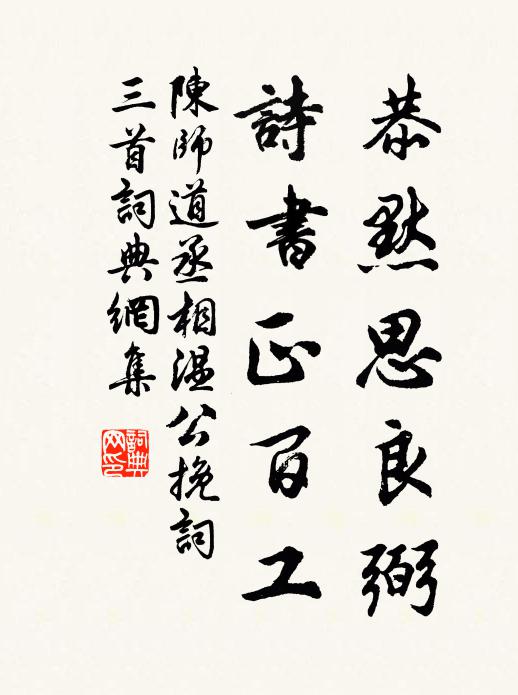 恭默思良弼
詩書正百工
陳師道丞相溫公挽詞
三首詞典網集
詞典網印